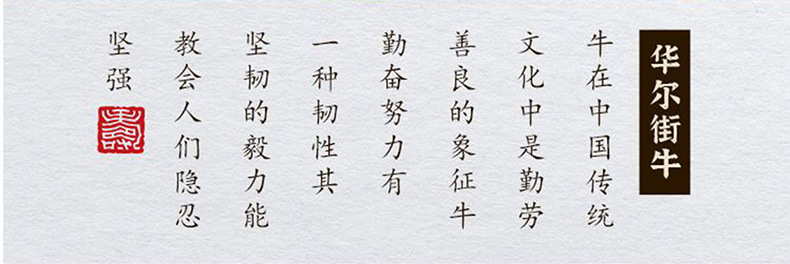 华尔街牛
牛在中国传统
文化中是勤劳
善良的象征牛
勤奋努力有
一种韧性其
坚韧的毅力能
教会人们隐忍
坚强